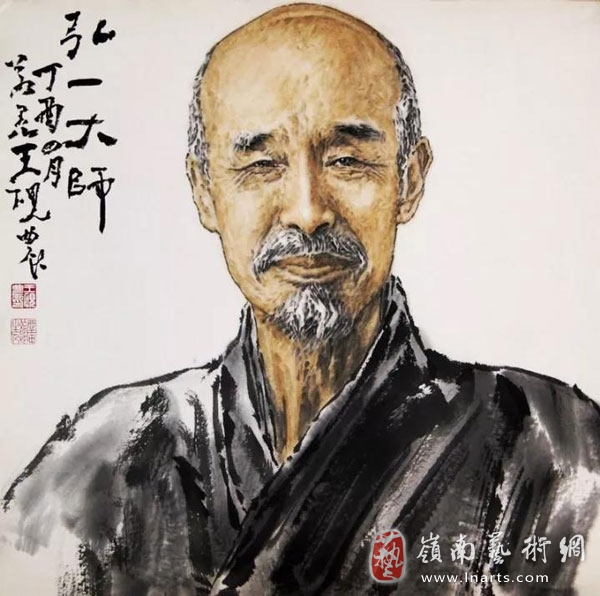 弘一大師
丁酉四月
王硯農
嶺南藝術網
www.lnarts.com